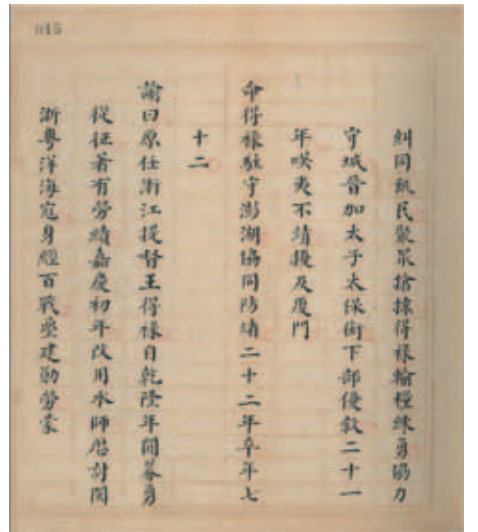 015
糾同飢民聚眾搶掠得祿輸糧練勇協力
守城晉加太子太保銜下部優敘二十一
年㗆夷不靖擾及廈門
命得祿駐守澎湖協同防堵二十二年卒年七
十二
諭曰原任浙江提督王得祿自乾隆年間募勇
從征著有勞績嘉慶初年改用水師洊討閩
浙粵洋海寇身經百戰疊建勛勞蒙